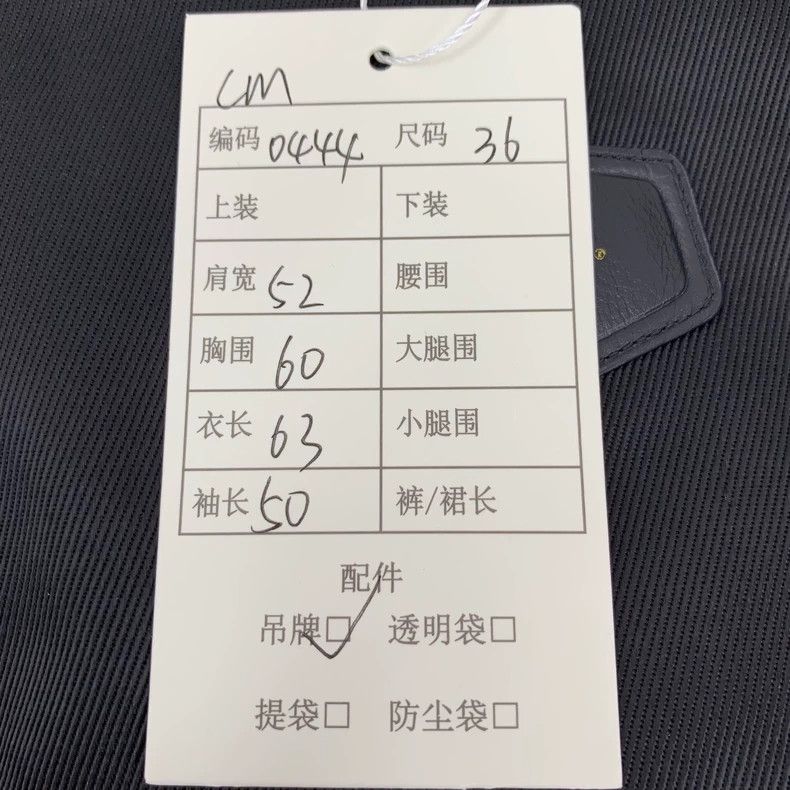 CM
编码 0444 尺码 36
上装 下装
肩宽 52 腰围
胸围 60 大腿围
衣长 63 小腿围
袖长 50 裤/裙长
配件
吊牌☑ 透明袋□
提袋□ 防尘袋□